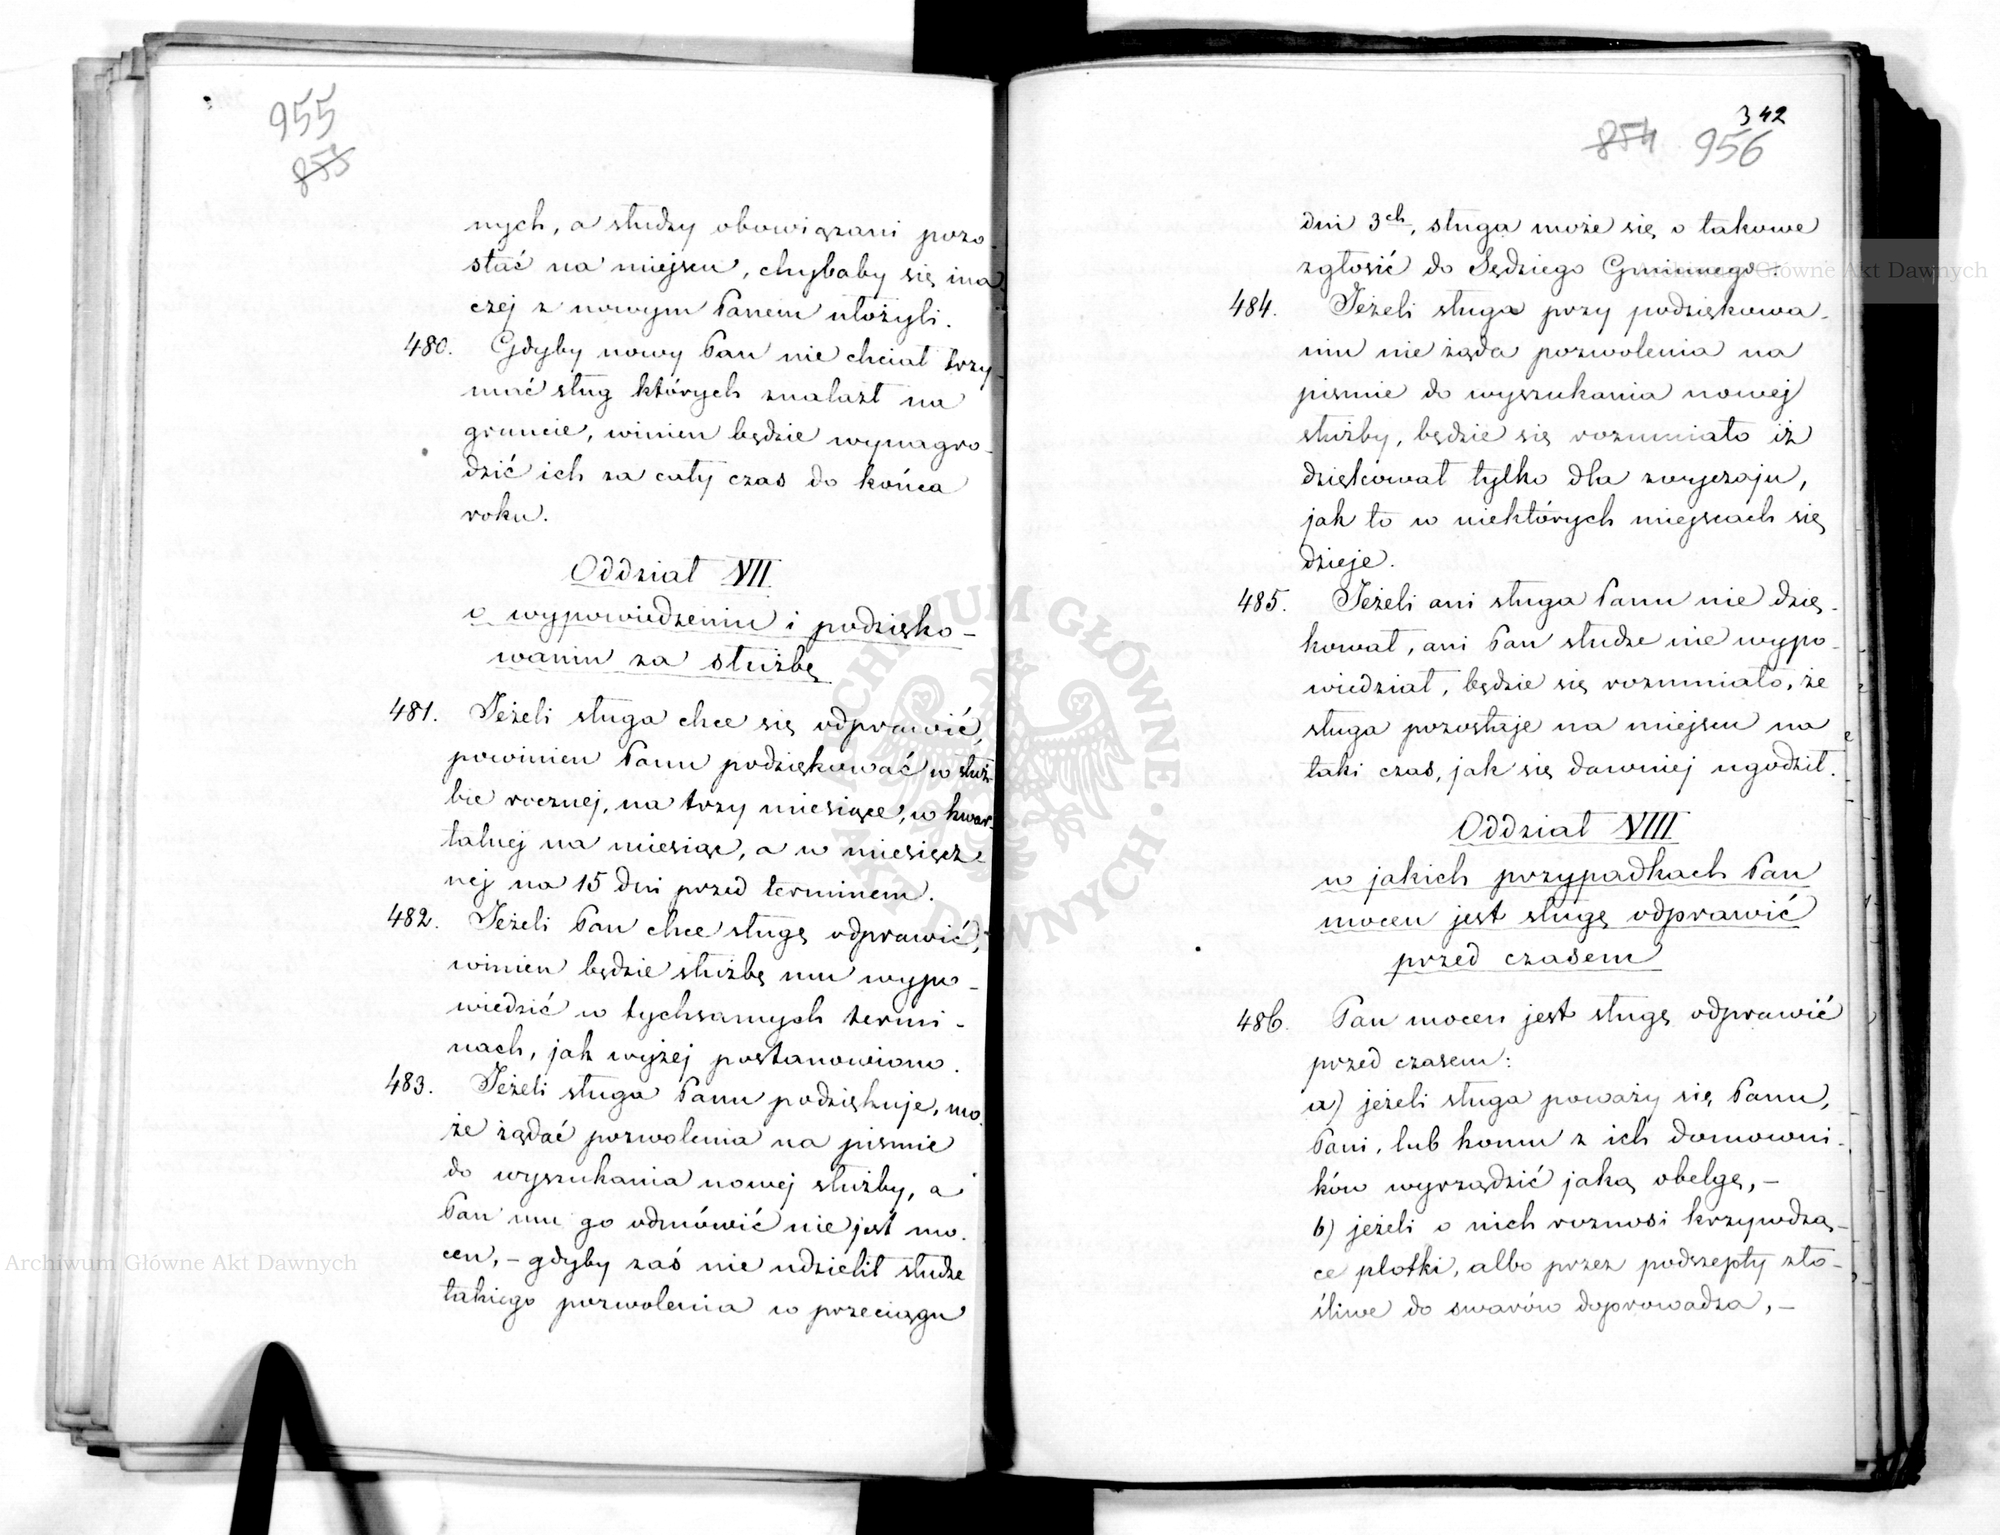 955
853
nych, a słudzy obowiązani pozo-
stać na miejscu, chybaby się ina-
czej z nowym Panem ułożyli.
480. Gdyby nowy Pan nie chciał trzy-
mać sług których znalazł na
gruncie, winien będzie wynagro-
dzić ich za cały czas do końca
roku.
Oddział VII.
o wypowiedzeniu i podzięko-
waniu za służbę
481. Jeżeli sługa chce się odprawić,
powinien Panu podziękować w służ-
bie rocznej, na trzy miesiące, w kwar-
talnej na miesiąc, a w miesięcz-
nej na 15 dni przed terminem.
482. Jeżeli Pan chce sługę odprawić,
winien będzie służbę mu wypo-
wiedzić w tychsamych termi-
nach, jak wyżej postanowiono.
483. Jeżeli sługa Panu podziękuje, mo-
że żądać pozwolenia na piśmie
do wyszukania nowej służby, a
Pan mu go odmówić nie jest mo-
cen, – gdyby zaś nie udzielił słudze
takiego pozwolenia w przeciągu
342
854 956
dni 3ch, sługa może się o takowe
zgłosić do Sędziego Gminnego.
484. Jeżeli sługa przy podziękowa-
niu nie żąda pozwolenia na
piśmie do wyszukania nowej
służby, będzie się rozumiało iż
dziękował tylko dla zwyczaju,
jak to w niektórych miejscach się
dzieje.
485. Jeżeli ani sługa Panu nie dzię-
kował, ani Pan słudze nie wypo-
wiedział, będzie się rozumiało, że
sługa pozostaje na miejscu na
taki czas, jak się dawniej ugodził.
Oddział VIII
w jakich przypadkach Pan
mocen jest sługę odprawić
przed czasem
486. Pan mocen jest sługę odprawić
przed czasem:
a) jeżeli sługa poważy się Panu,
Pani, lub komu z ich domowni-
ków wyrządzić jaką obelgę, –
b) jeżeli o nich roznosi krzywdzą-
ce plotki, albo przez podszepty zło-
śliwe do swarów doprowadza, –
Archiwum Główne Akt Dawnych
Archiwum Główne Akt Dawnych
ARCHIWUM GŁÓWNE AKT DAWNYCH